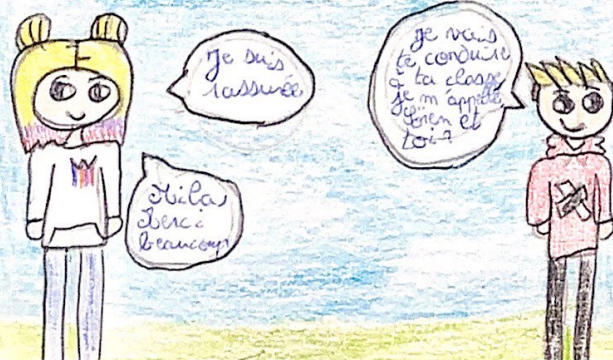 Je suis
rassurée
je vais
te conduire
à ta classe
je m'appelle
et
toi?
Mila,
Merci
beaucoup